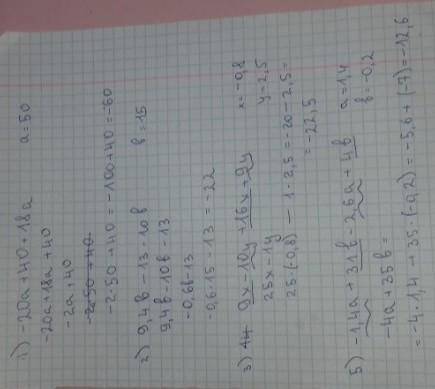 1) -20a+40+18a a=50
-20a+18a+40
-2a+40
-2·50+40=-100+40=-60
2) 9,4b-13-10b b=15
9,4b-10b-13
-0,6b-13
-0,6·15-13=-22
3) 9x-10y+16x+9y x=-0,8
25x-1y y=2,5
25·(-0,8)-1·2,5=-20-2,5=
=-22,5
5) -1,4a+31b-2,6a+4b a=1,4
-4a+35b= b=-0,2
=-4·1,4+35·(-0,2)=-5,6+(-7)=-12,6